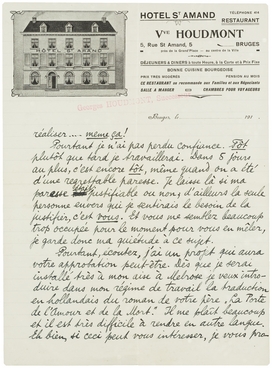 HOTEL ST AMAND
TÉLÉPHONE 814
RESTAURANT
Vve HOUDMONT
5, Rue St Amand, 5
BRUGES
près de la Grand'Place
au centre de la Ville
DÉJEUNERS & DINERS à toute Heure, à la Carte et à Prix Fixe
BONNE CUISINE BOURGEOISE
PRIX TRÈS MODÉRÉS
PENSION AU MOIS
CE RESTAURANT se recommande aux Familles et aux Négociants
SALLE A MANGER
CHAMBRES POUR VOYAGEURS
HOTEL ST AMAND
Bruges le 191
réaliser.... même ça!
Pourtant je n'ai pas perdu confiance. Tôt
plutôt que tard je travaillerai. Dans 5 jours
au plus, c'est encore tôt, même quand on a été
d'une regrettable paresse. Je laisse là si ma
paresse était justifiable ou non; d'ailleurs la seule
personne envers qui je sentirais le besoin de la
justifier, c'est vous. Et vous me semblez beaucoup
trop occupée pour le moment pour vous en mêler,
je garde donc ma quiétude à ce sujet.
Pourtant, écoutez, j'ai un projet qui aura
votre approbation peut-être. Dès que je serai
installé très à mon aise à Melrose je veux intro-
duire dans mon régime de travail la traduction
en hollandais du roman de votre père, "La Porte
de l'Amour et de la Mort." Il me plaît beaucoup
et il est très difficile à rendre en autre langue.
Eh bien, si ceci peut vous intéresser, je vous pro